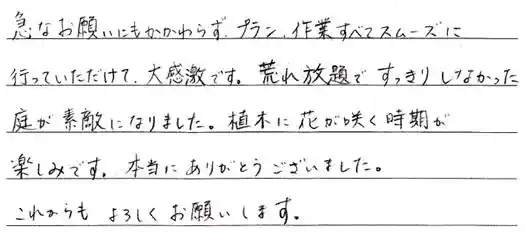 急なお願いにもかかわらず、プラン、作業すべてスムーズに
行っていただけて、大感激です。荒れ放題ですっきりしなかった
庭が素敵になりました。植木に花が咲く時期が
楽しみです。本当にありがとうございました。
これからもよろしくお願いします。